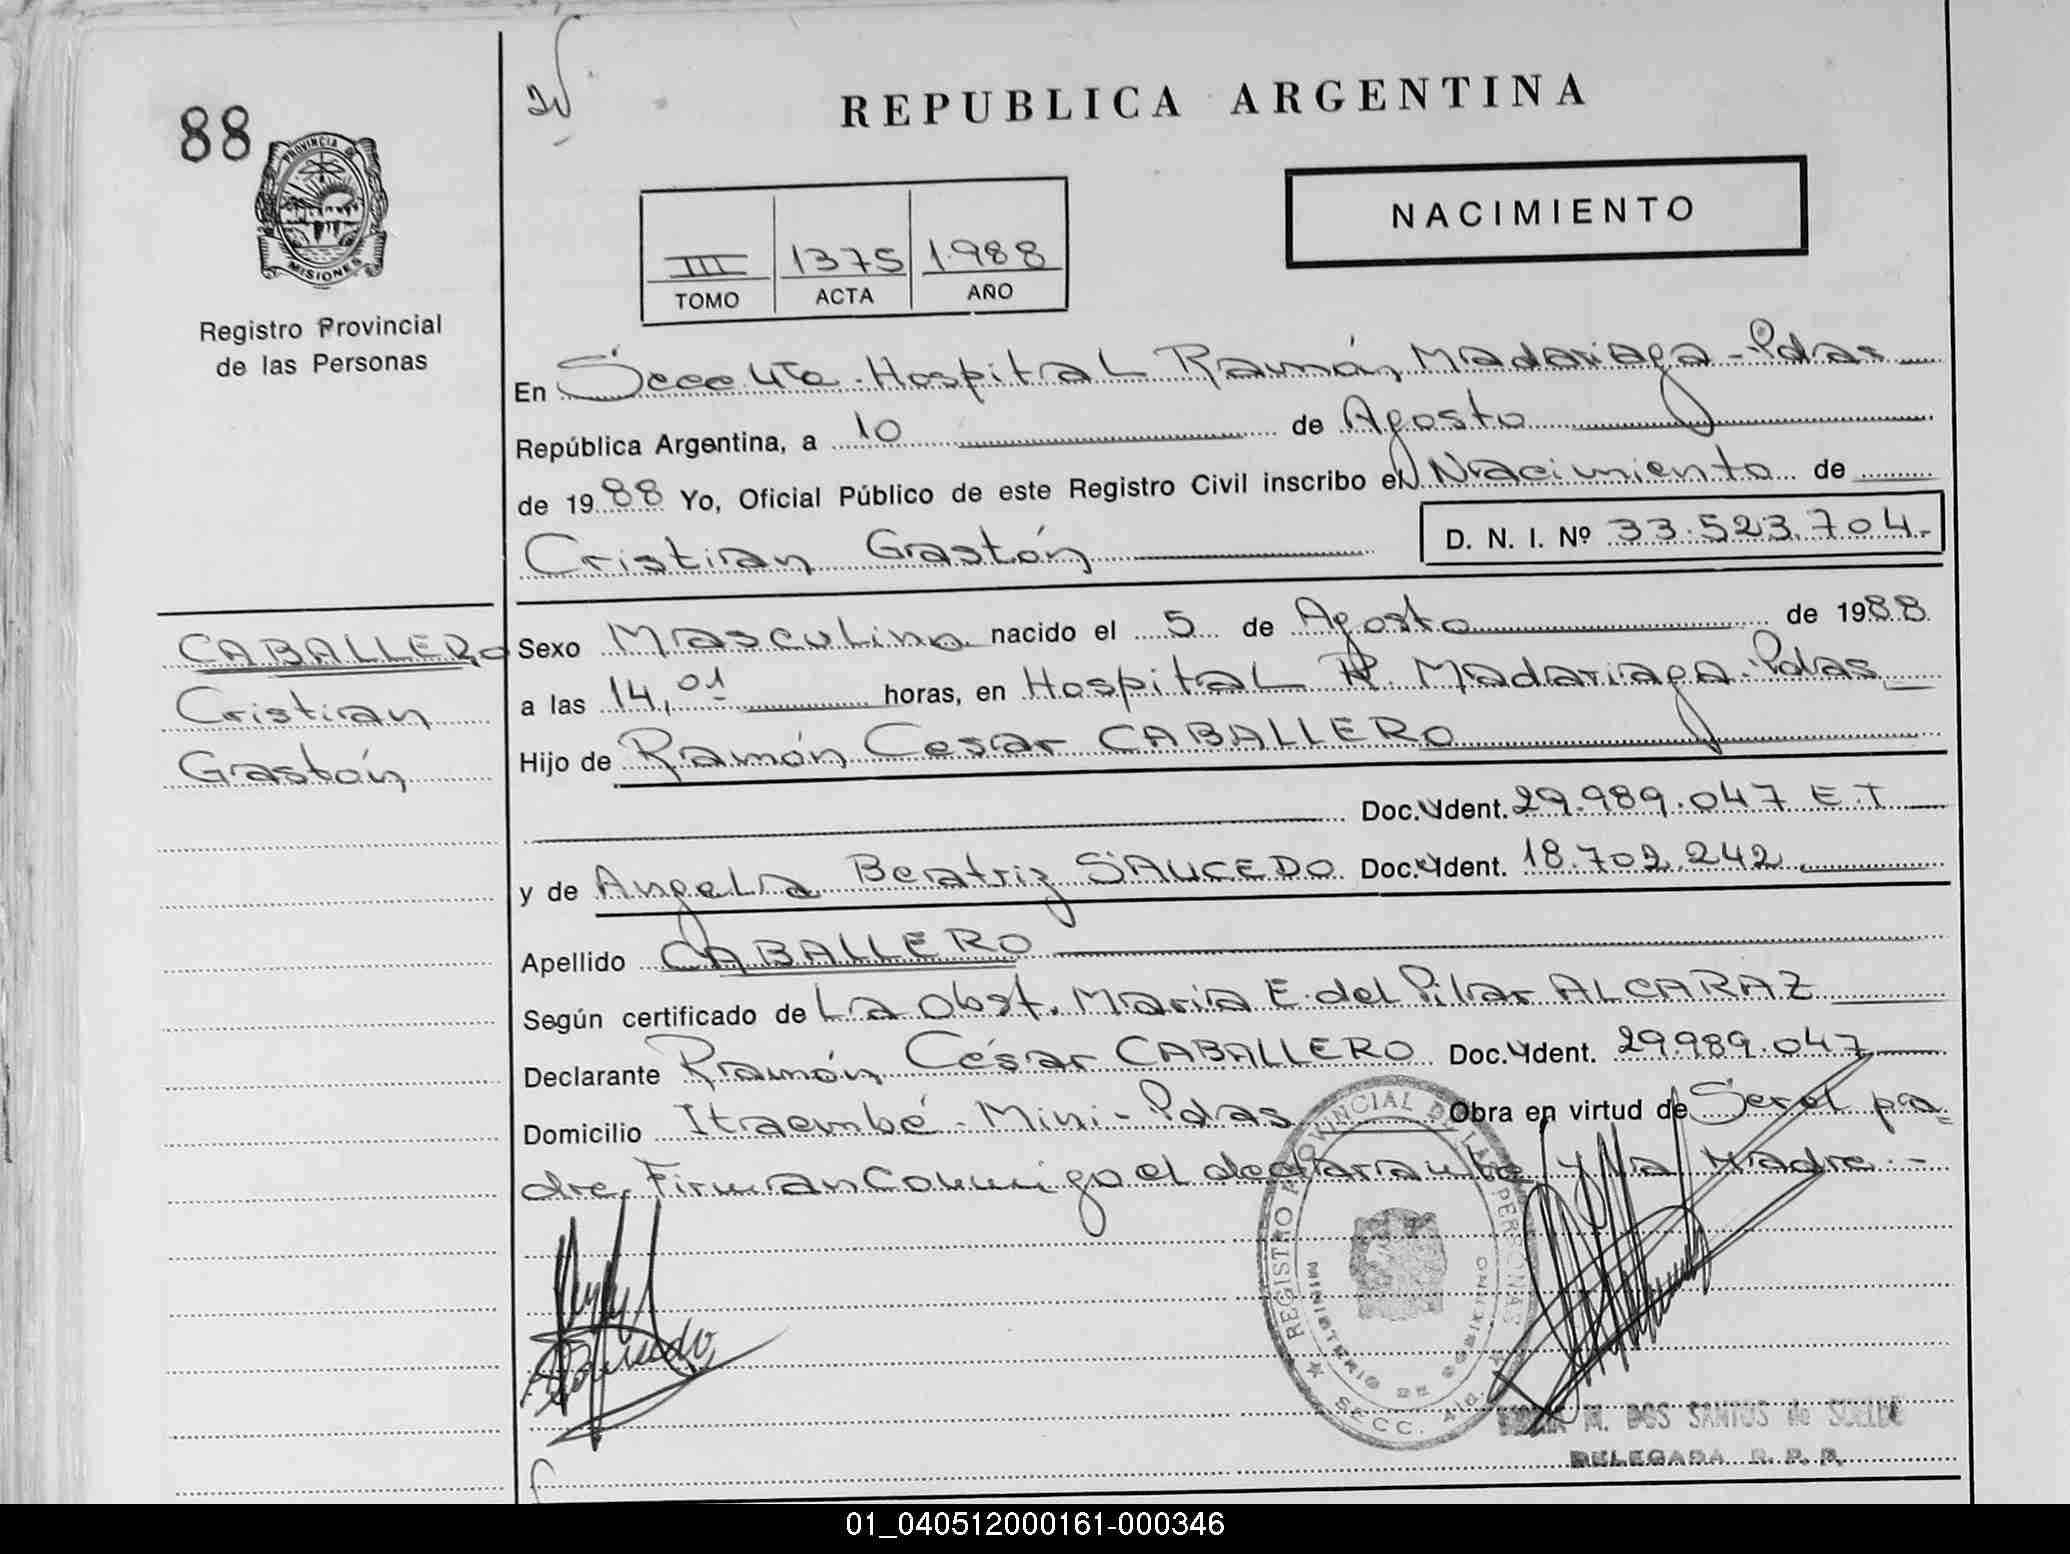 88
PROVINCIA DE
MISIONES
Registro Provincial
de las Personas
REPUBLICA ARGENTINA
NACIMIENTO
III 1375 1988
TOMO ACTA AÑO
En Secc 4ta. Hospital Ramón Madariaga - Pdas
República Argentina, a 10 de Agosto
de 1988 Yo, Oficial Público de este Registro Civil inscribo el Nacimiento de
Cristian Gastón D. N. I. Nº 33.523.704.-
CABALLERO
Cristian
Gastón
Sexo Masculino nacido el 5 de Agosto de 1988
a las 14,01 horas, en Hospital R. Madariaga - Pdas
Hijo de Ramón Cesar CABALLERO
Doc. Ident. 29.989.047 E.T
y de Angela Beatriz SAUCEDO Doc. Ident. 18.702.242
Apellido CABALLERO
Según certificado de La Obst. Maria E. del Pilar ALCARAZ
Declarante Ramón César CABALLERO Doc. Ident. 29.989.047
Domicilio Itaembé - Mini - Pdas Obra en virtud de Ser el pa-
dre. Firman Conmigo el declarante y la Madre.-
REGISTRO PROVINCIAL DE LAS PERSONAS
MINISTERIO DE GOBIERNO
SECC. 4ta.
M. DOS SANTOS de SUELDO
DELEGADA R. P. P.
01_040512000161-000346